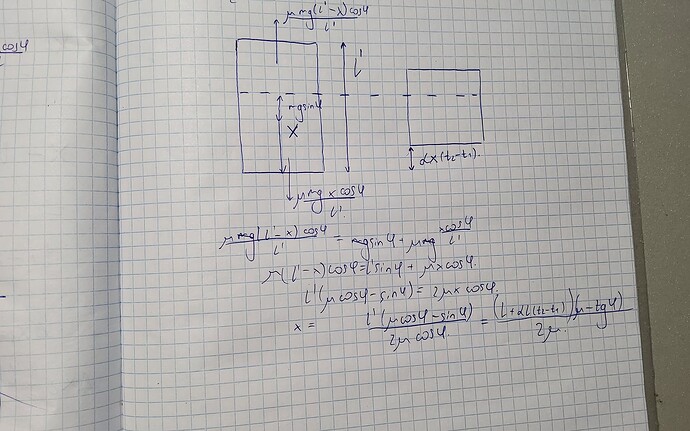 cos φ
l'
μ mg(l' - x) cos φ
l'
l'
mg sin φ
x
αx(t₂-t₁).
μ mg x cos φ
l'.
μ mg(l' - x) cos φ / l' = mg sin φ + μ mg x cos φ / l'
μ(l' - x) cos φ = l' sin φ + μ x cos φ.
l'(μ cos φ - sin φ) = 2μ x cos φ.
x = l'(μ cos φ - sin φ) / 2μ cos φ. = (l + αl(t₂-t₁))(μ - tg φ) / 2μ.